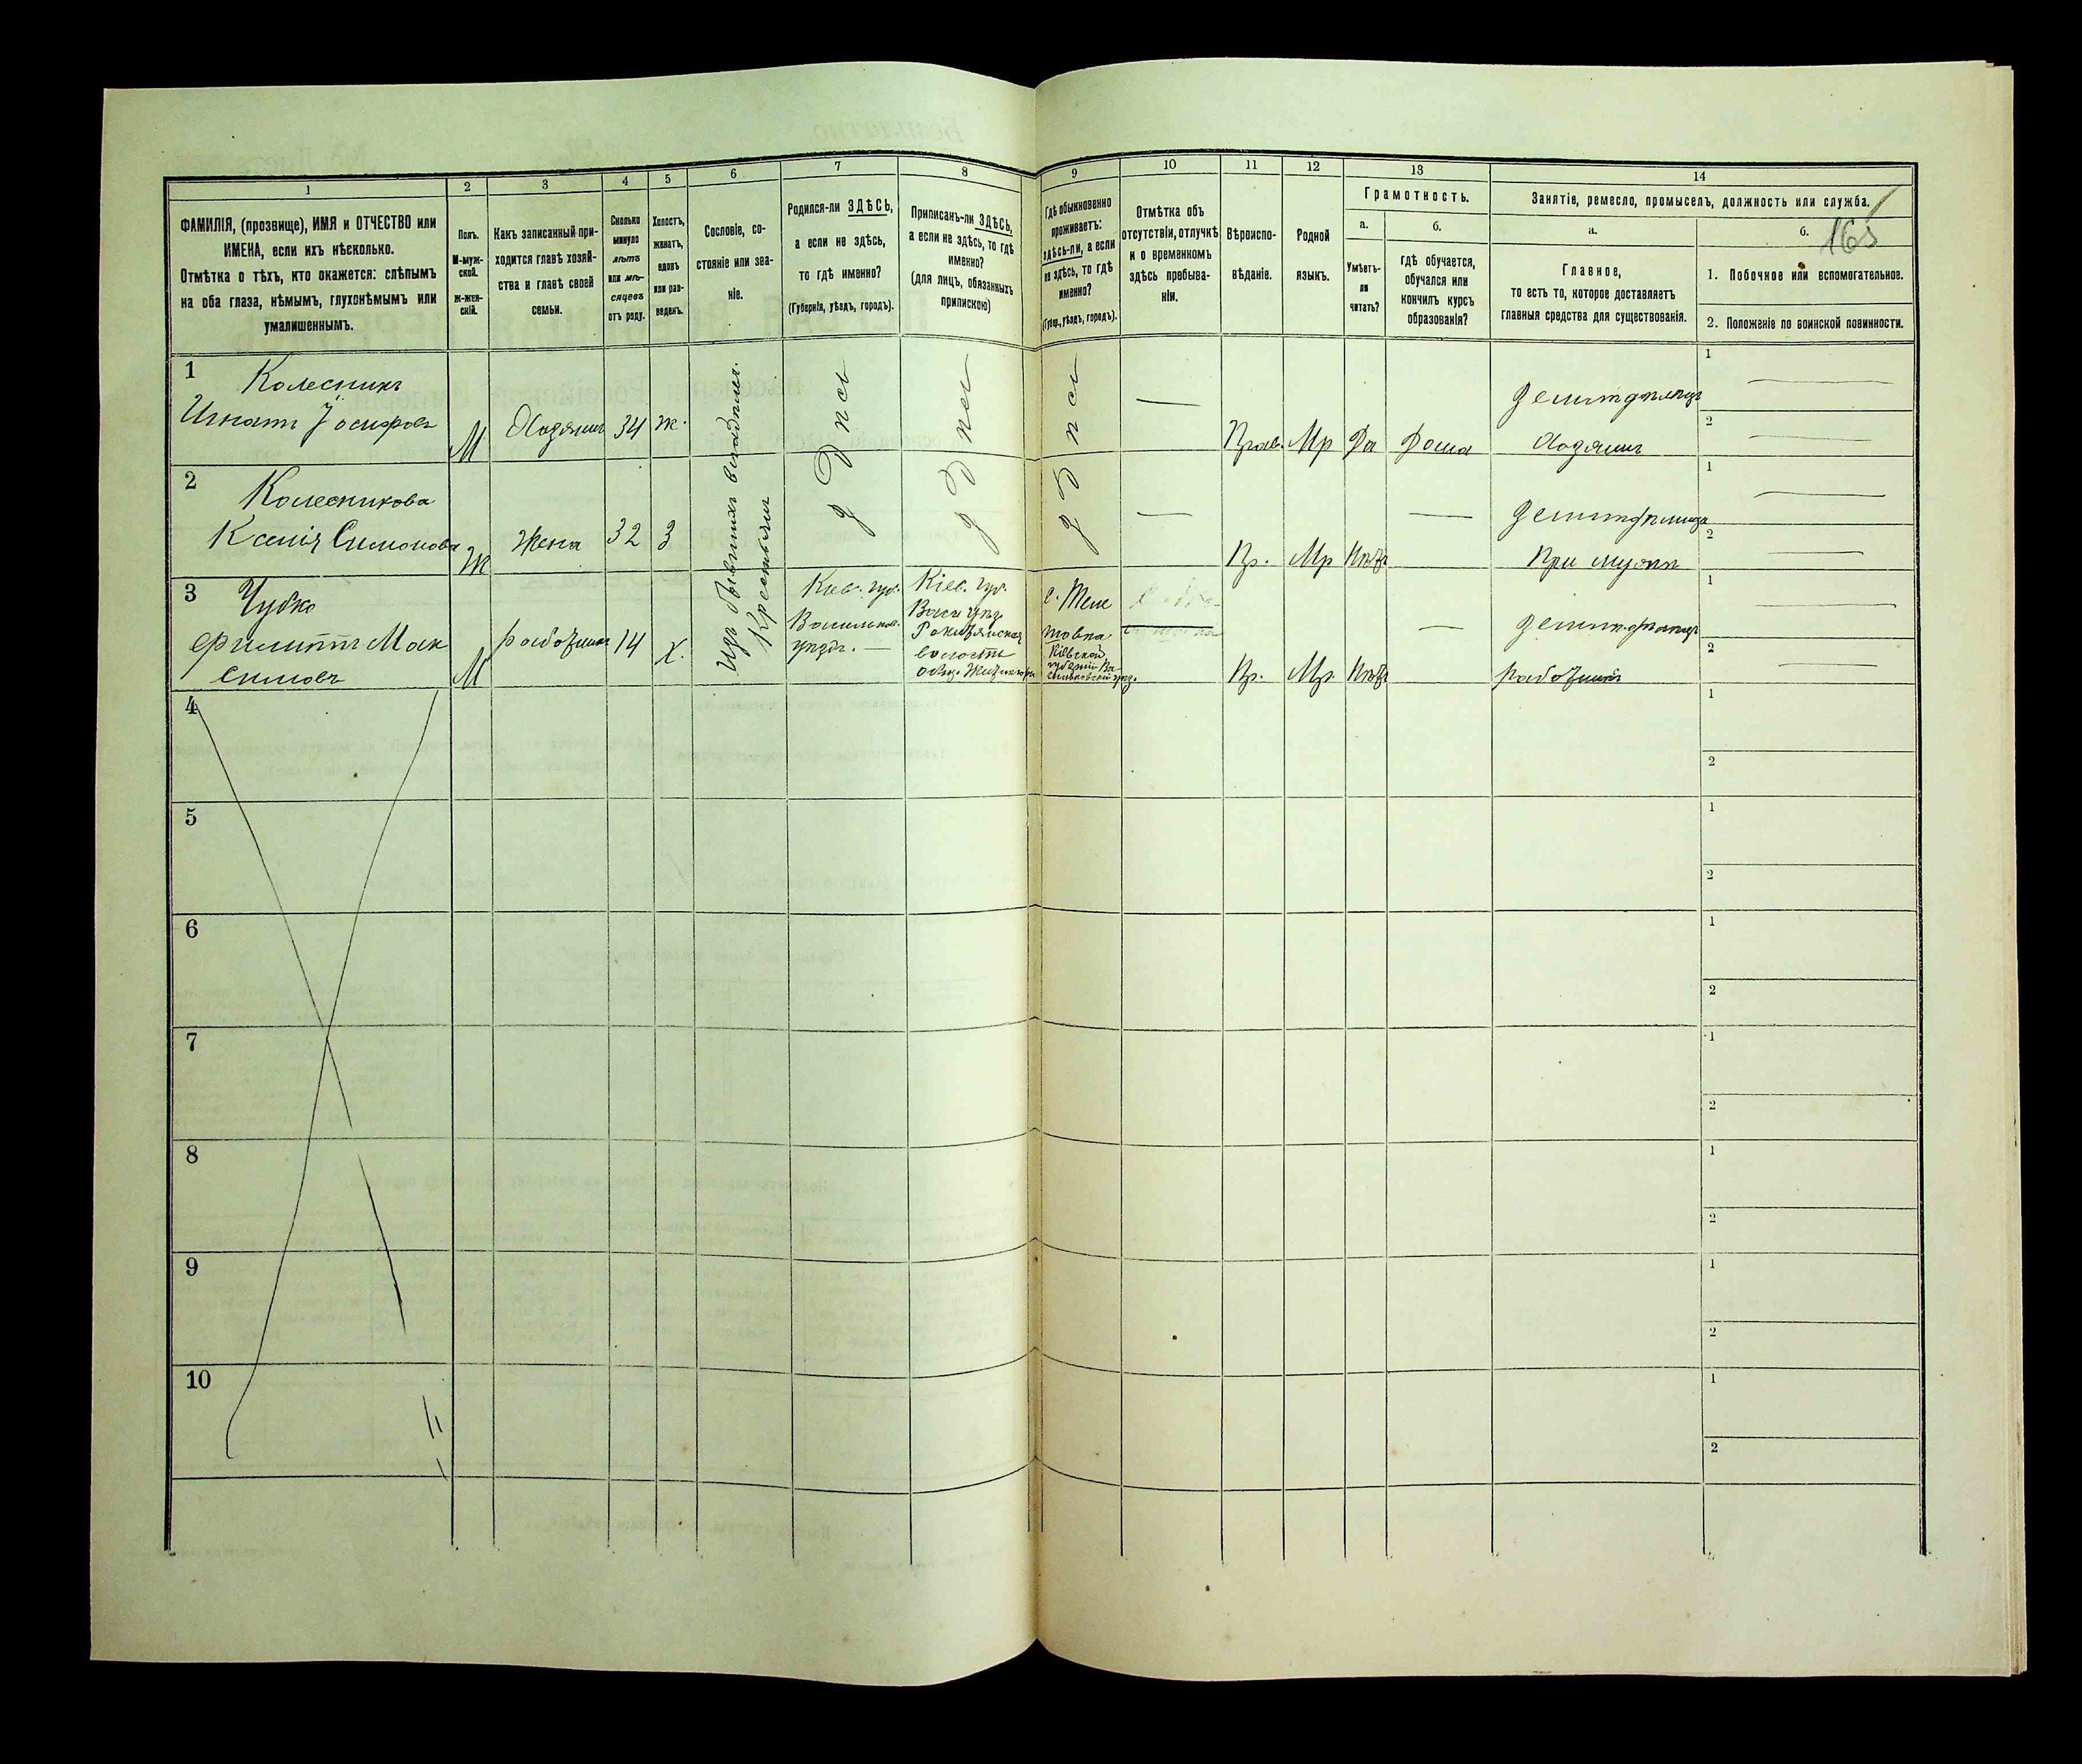 1 2 3 4 5 6 7 8 9 10 11 12 13 14
ФАМИЛІЯ, (прозвище), ИМЯ и ОТЧЕСТВО или
ИМЕНА, если ихъ нѣсколько.
Отмѣтка о тѣхъ, кто окажется: слѣпымъ
на оба глаза, нѣмымъ, глухонѣмымъ или
умалишеннымъ.
Полъ.
М-муж-
ской.
Ж-жен-
скій.
Какъ записанный при-
ходится главѣ хозяй-
ства и главѣ своей
семьи.
Сколько
минуло
лѣтъ
или мѣ-
сяцевъ
отъ роду.
Холостъ,
женатъ,
вдовъ
или раз-
веденъ.
Сословіе, со-
стояніе или зва-
ніе.
Родился-ли ЗДѢСЬ,
а если не здѣсь,
то гдѣ именно?
(Губернія, уѣздъ, городъ).
Приписанъ-ли ЗДѢСЬ,
а если не здѣсь, то гдѣ
именно?
(для лицъ, обязанныхъ
припискою)
Гдѣ обыкновенно
проживаетъ:
здѣсь-ли, а если
не здѣсь, то гдѣ
именно?
(Губер., уѣздъ, городъ).
Отмѣтка объ
отсутствіи, отлучкѣ
и о временномъ
здѣсь пребыва-
ніи.
Вѣроиспо-
вѣданіе.
Родной
языкъ.
Грамотность.
а.
Умѣетъ-
ли
читать?
б.
гдѣ обучается,
обучался или
кончилъ курсъ
образованія?
Занятіе, ремесло, промыселъ, должность или служба.
165
а.
Главное,
то есть то, которое доставляетъ
главныя средства для существованія.
б.
1. Побочное или вспомогательное.
2. Положеніе по воинской повинности.
1 Колесникъ
Игнатъ Іосифовъ
М Хозяинъ 34 ж.
Изъ бывшихъ владѣльч.
Крестьянъ
здѣсь
здѣсь
здѣсь
—
Прав. Мр Да Дома
Земледѣлецъ
Хозяинъ
1 —
2 —
2 Колесникова
Ксенія Симонова
Ж Жена 32 З
—
Пр. Мр Нѣтъ —
Земледѣлица
При мужѣ
1 —
2 —
3 Чубко
Филиппъ Мак
симовъ
М работникъ 14 Х.
Кіев. губ.
Васильков.
уѣздъ. —
Кіев. губ.
Васи уѣз
волости
с.
товка
Кіевской
губерніи Ва
сильковскій уѣзд.
Пр. Мр. Нѣтъ —
Земледѣлецъ
работникъ
1 —
2 —
4
1
2
5
1
2
6
1
2
7
1
2
8
1
2
9
1
2
10
1
2